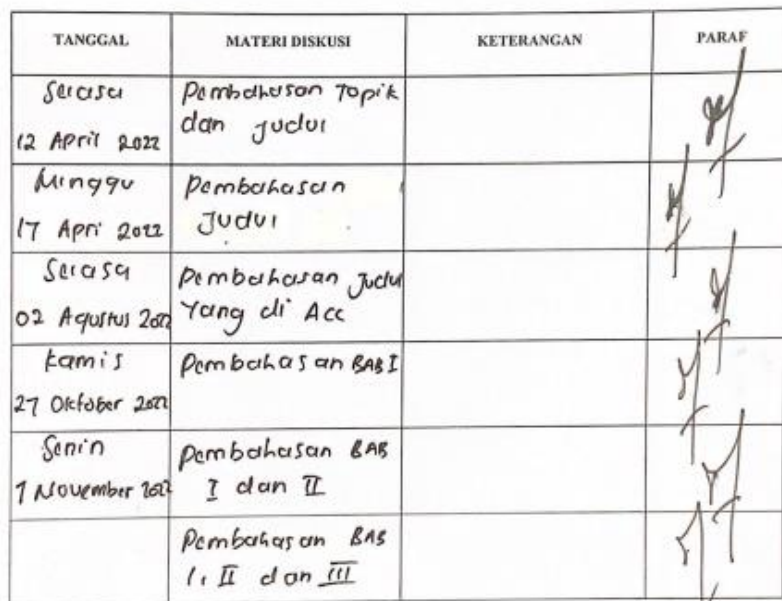 TANGGAL MATERI DISKUSI KETERANGAN PARAF
Selasa
12 April 2022
Pembahasan Topik
dan judul
Minggu
17 April 2022
Pembahasan
Judul
Selasa
02 Agustus 2022
Pembahasan Judul
Yang di Acc
Kamis
27 Oktober 2022
Pembahasan BAB I
Senin
7 November 2022
Pembahasan BAB
I dan II
Pembahasan BAB
I, II dan III